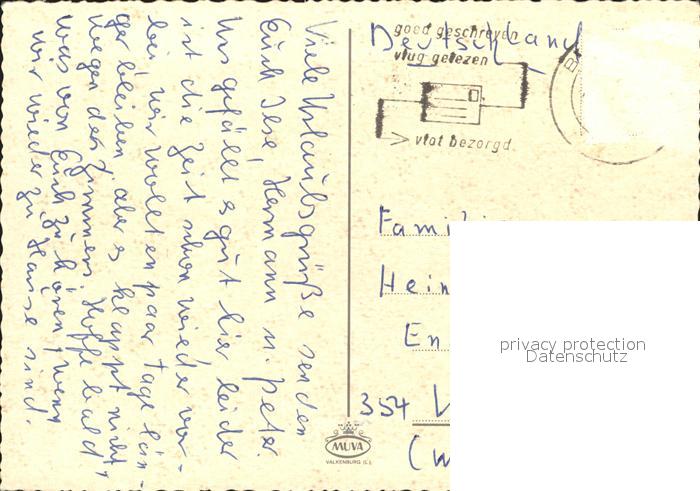 Viele Urlaubsgrüße senden
Euch Ilse, Hermann u. Peter.
Uns gefällt es gut hier leider
ist die Zeit schon wieder vor-
bei wir wollten paar Tage län-
ger bleiben, aber es klappt nicht,
wegen des Zimmers. Hoffe bald
was von Euch zu hören, wenn
wir wieder zu Hause sind.
Deutschland
goed geschreven
vlug gelezen
vlot bezorgd
Famili
Hein
En
354
(W
MUVA
VALKENBURG (L).
privacy protection
Datenschutz